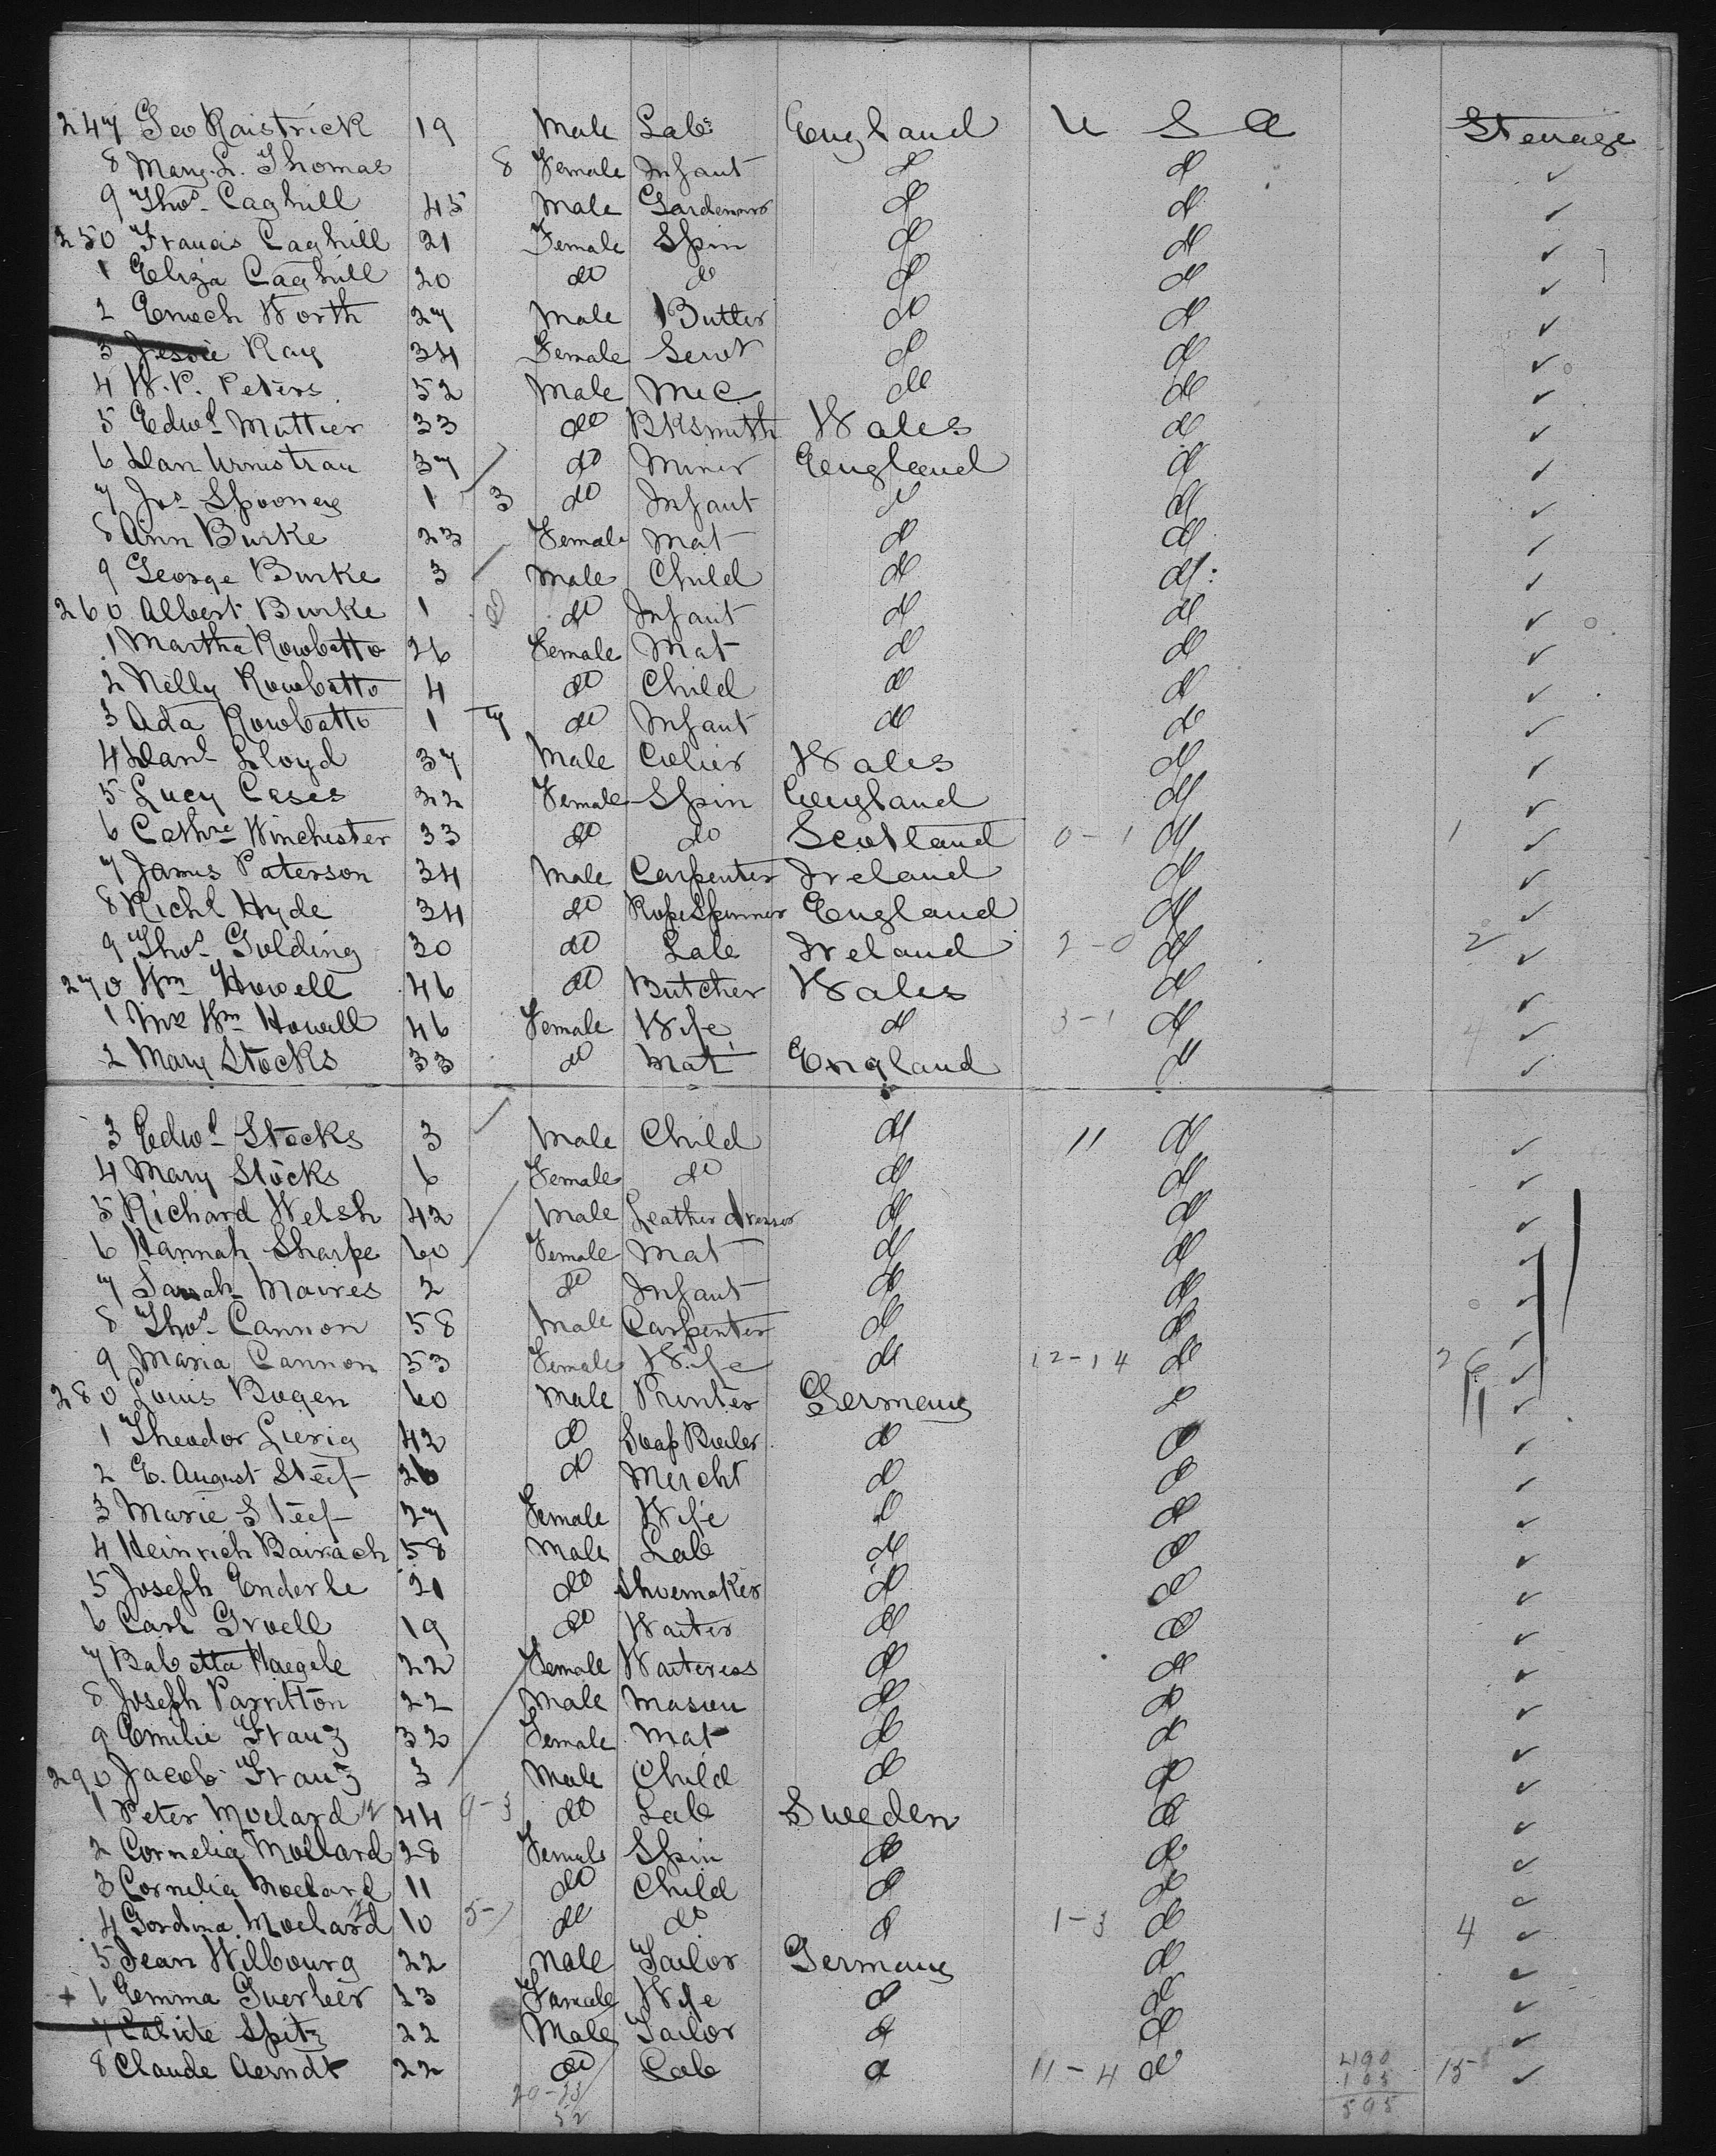 247 Geo Raistrick 19 Male Lab England U S A Steerage
8 Mary L. Thomas 8 Female Infant do do ✓
9 Thos Caghill 45 Male Gardener do do ✓
250 Francis Caghill 21 Female Spin do do ✓
1 Eliza Caghill 20 do do do do ✓
2 Enoch Worth 27 Male Butler do do ✓
3 Jessie Ray 34 Female Servt do do ✓
4 W. P. Peters 52 Male Mec do do ✓
5 Edwd Mattier 33 do BKsmith Wales do ✓
6 Dan 37 do Miner England do ✓
7 Jos Spooney 1 3 do Infant do do ✓
8 Ann Burke 23 Female Mat do do ✓
9 George Burke 3 Male Child do do ✓
260 Albert Burke 1 do Infant do do ✓
1 Martha Rowbatto 26 Female Mat do do ✓
2 Nelly Rowbatto 4 do Child do do ✓
3 Ada Rowbatto 1 7 do Infant do do ✓
4 Danl Lloyd 37 Male Colier Wales do ✓
5 Lucy Cases 22 Female Spin England do ✓
6 Cathre Winchester 33 do do Scotland 0-1 do 1 ✓
7 James Paterson 34 Male Carpenter Ireland do ✓
8 Richd Hyde 34 do RopeSpinner England do ✓
9 Thos Golding 30 do Lab Ireland 2-0 do 2 ✓
270 Wm Howell 46 do Butcher Wales do ✓
1 Mrs Wm Howell 46 Female Wife do 3-1 do 4 ✓
2 Mary Stocks 33 do Mat England do ✓
3 Edwd Stocks 3 Male Child do 11 do ✓
4 Mary Stocks 6 Female do do do ✓
5 Richard Welsh 42 Male Leather dresser do do ✓
6 Hannah Sharpe 60 Female Mat do do ✓
7 Sarah Maires 2 do Infant do do ✓
8 Thos Cannon 58 Male Carpenter do do ✓
9 Maria Cannon 53 Female Wife do 12-14 do 26 ✓
280 Louis Bogen 60 Male Printer Germany do ✓
1 Theodor Lierig 42 do Soap Boiler do do ✓
2 E. August Steef 26 do Mercht do do ✓
3 Marie Steef 27 Female Wife do do ✓
4 Heinrich Bairach 58 Male Lab do do ✓
5 Joseph Enderle 21 do Shoemaker do do ✓
6 Carl Groell 19 do Waiter do do ✓
7 Babetta Haegele 22 Female Waiteress do do ✓
8 Joseph Parritton 22 Male Mason do do ✓
9 Emilie Franz 32 Female Mat do do ✓
290 Jacob Franz 3 Male Child do do ✓
1 Peter Moelard 44 9-3 do Lab Sweden do ✓
2 Cornelia Moelard 28 Female Spin do do ✓
3 Cornelia Moelard 11 do Child do do ✓
4 Gordina Moelard 10 5- do do do 1-3 do 4 ✓
5 Jean Wilbourg 22 Male Tailor Germany do ✓
+ 6 Gemma Guerleer 23 Female Wife do do ✓
7 Spitz 22 Male Tailor do do ✓
8 Claude Aerndt 22 do Lab do 11-4 do 15 ✓
20-33
52
490
105
595